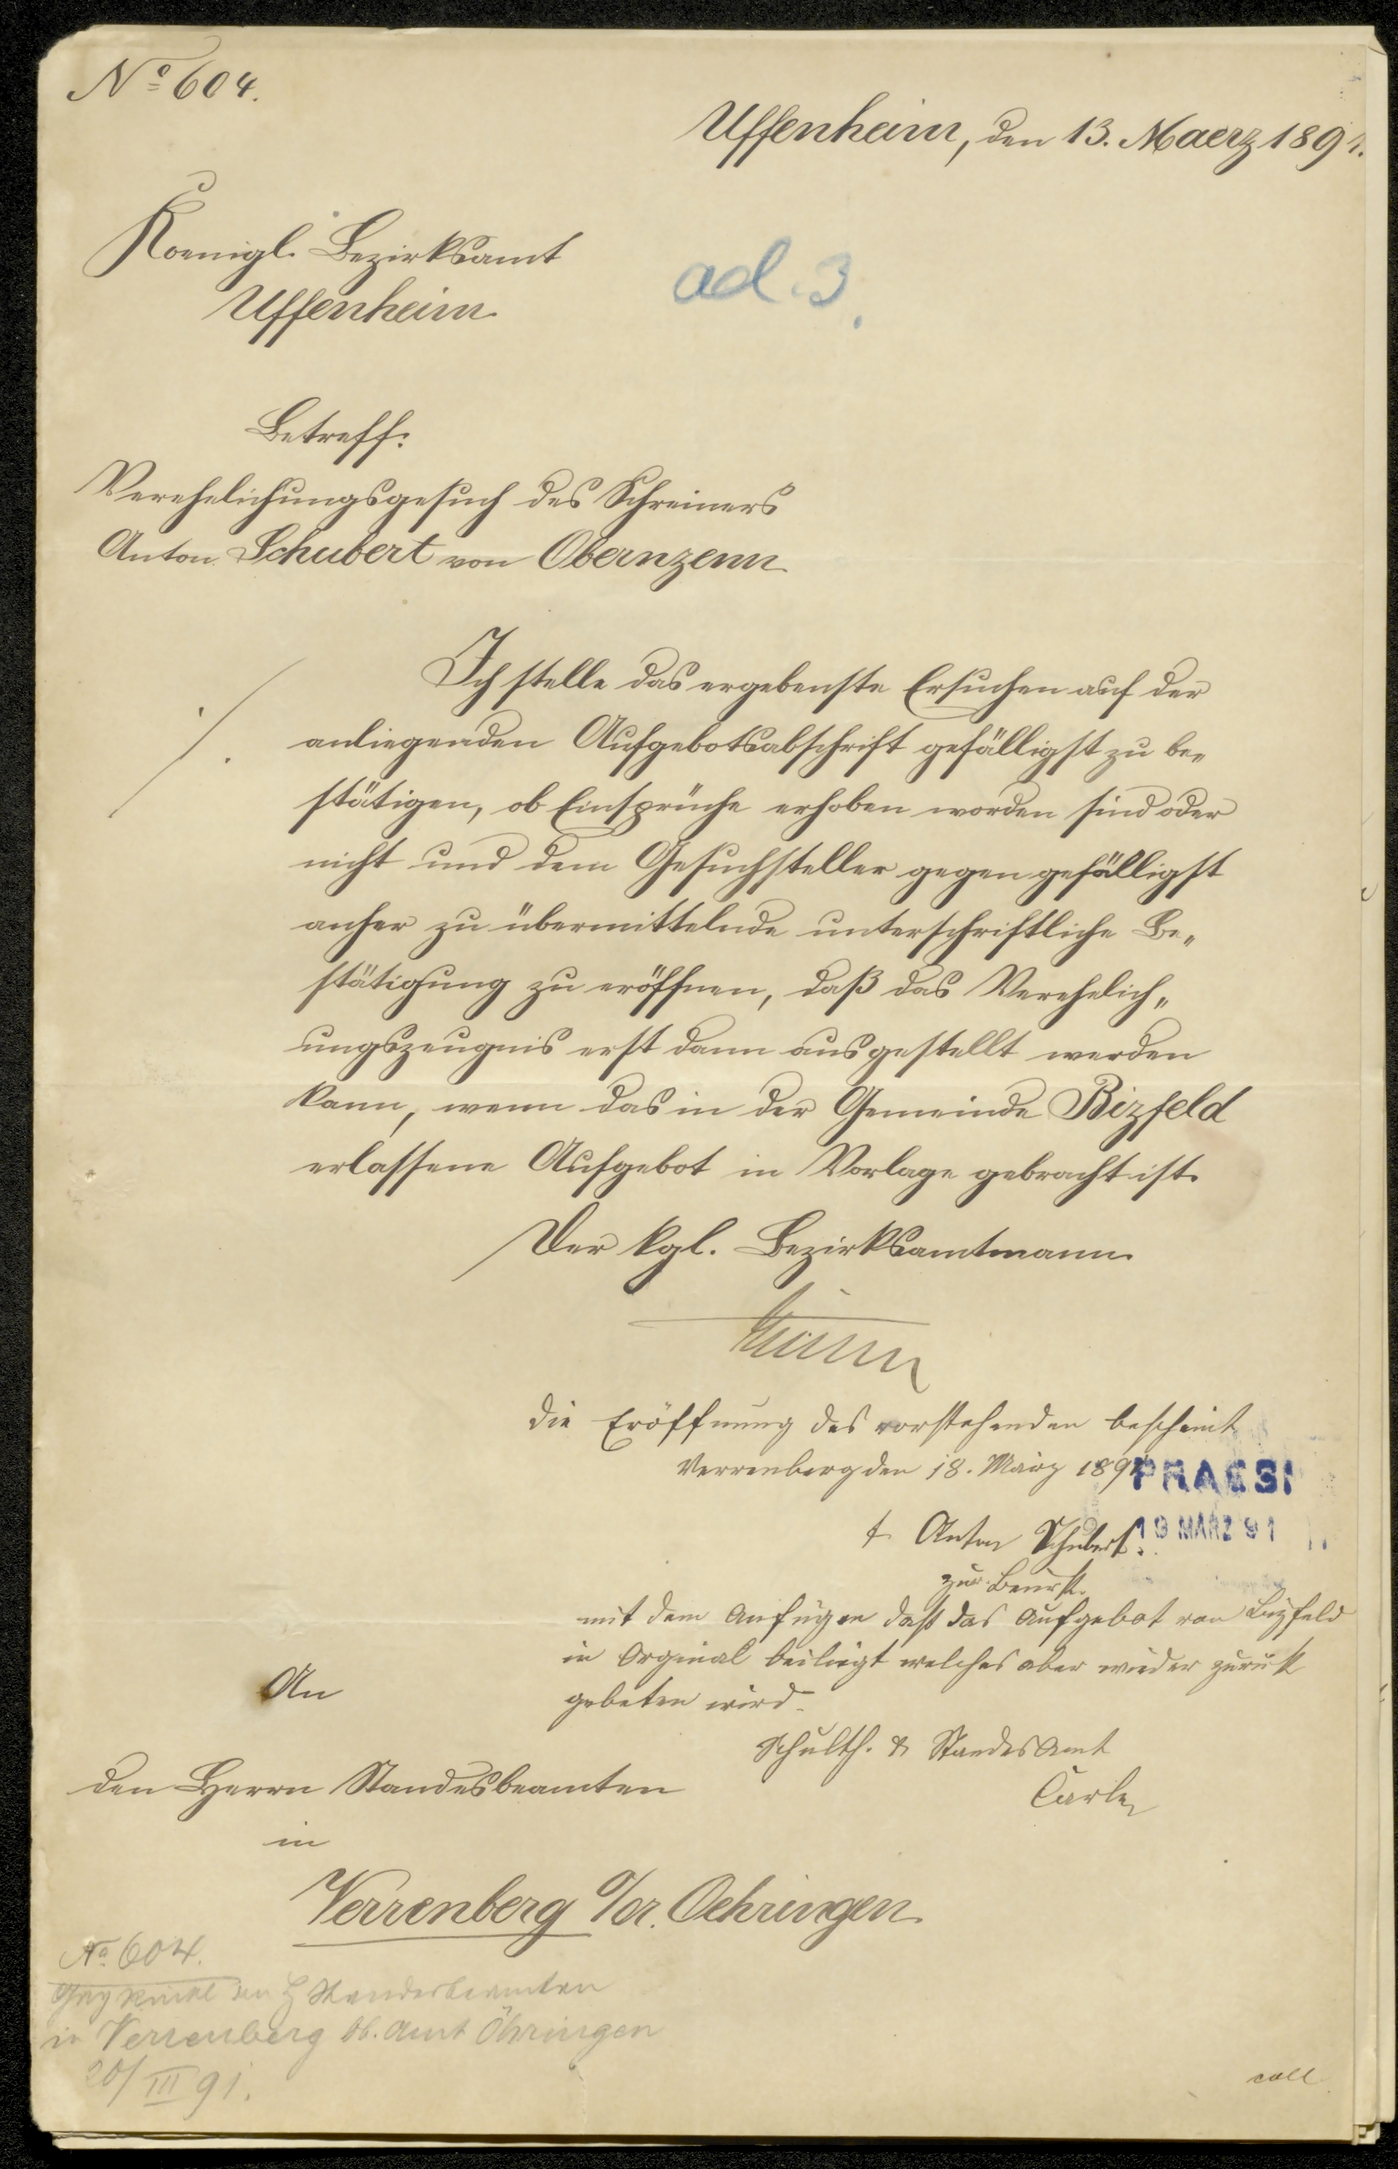 No 604.
Uffenheim, den 13. Maerz 1891.
Koenigl. Bezirksamt
Uffenheim
ad. 3.
Betreff:
Verehelichungsgesuch des Schreiners
Anton Schubert von Obernzenn
Ich stelle das ergebenste Ersuchen auf der
anliegenden Aufgebotsabschrift gefälligst zu be„
stätigen, ob Einsprüche erhoben worden sind oder
nicht und dem Gesuchsteller gegen gefälligst
anher zu übermittelnde unterschriftliche Be„
stätigung zu eröffnen, daß das Verehelich„
ungszeugnis erst dann ausgestellt werden
kann, wenn das in der Gemeinde Bizfeld
erlassene Aufgebot in Vorlage gebracht ist.
Der kgl. Bezirksamtmann
die Eröffnung des vorstehenden bescheint
Verrenberg den 18. März 1891
PRAES
19 MÄRZ 91
t. Anton Schubert.
zur Beurk.
mit dem Anfügen daß das Aufgebot von Bizfeld
in Orginal beiliegt welches aber wieder zurük
gebeten wird.
Schulth. & Standes Amt
Carle
An
den Herrn Standesbeamten
in
Verrenberg o/er. Oehringen
No 604.
den H Standesbeamten
in Verrenberg Ob. Amt Öhringen
20/III 91.
coll.